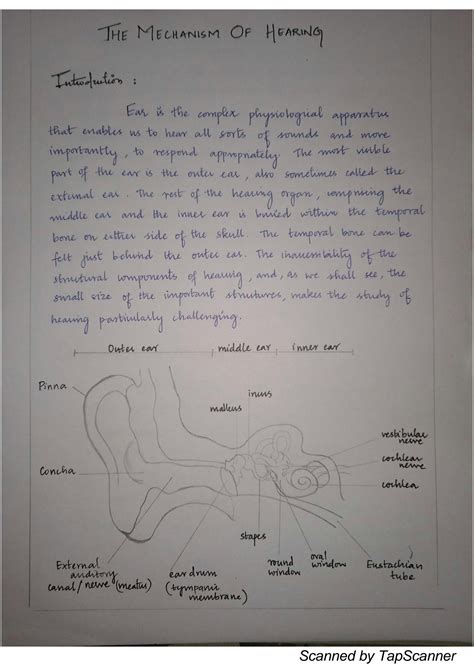 THE MECHANISM OF HEARING
Introduction :
Ear is the complex physiological apparatus
that enables us to hear all sorts of sounds and more
importantly, to respond appropriately. The most visible
part of the ear is the outer ear, also sometimes called the
external ear. The rest of the hearing organ, comprising the
middle ear and the inner ear is buried within the temporal
bone on either side of the skull. The temporal bone can be
felt just behind the outer ear. The inaccessibility of the
structural components of hearing, and, as we shall see, the
small size of the important structures, makes the study of
hearing particularly challenging.
Outer ear
middle ear
inner ear
Pinna
incus
malleus
vestibular
nerve
cochlear
nerve
Concha
cochlea
stapes
External
auditory
canal/nerve (meatus)
ear drum
(tympanic
membrane)
round
window
oval
window
Eustachian
tube
Scanned by TapScanner